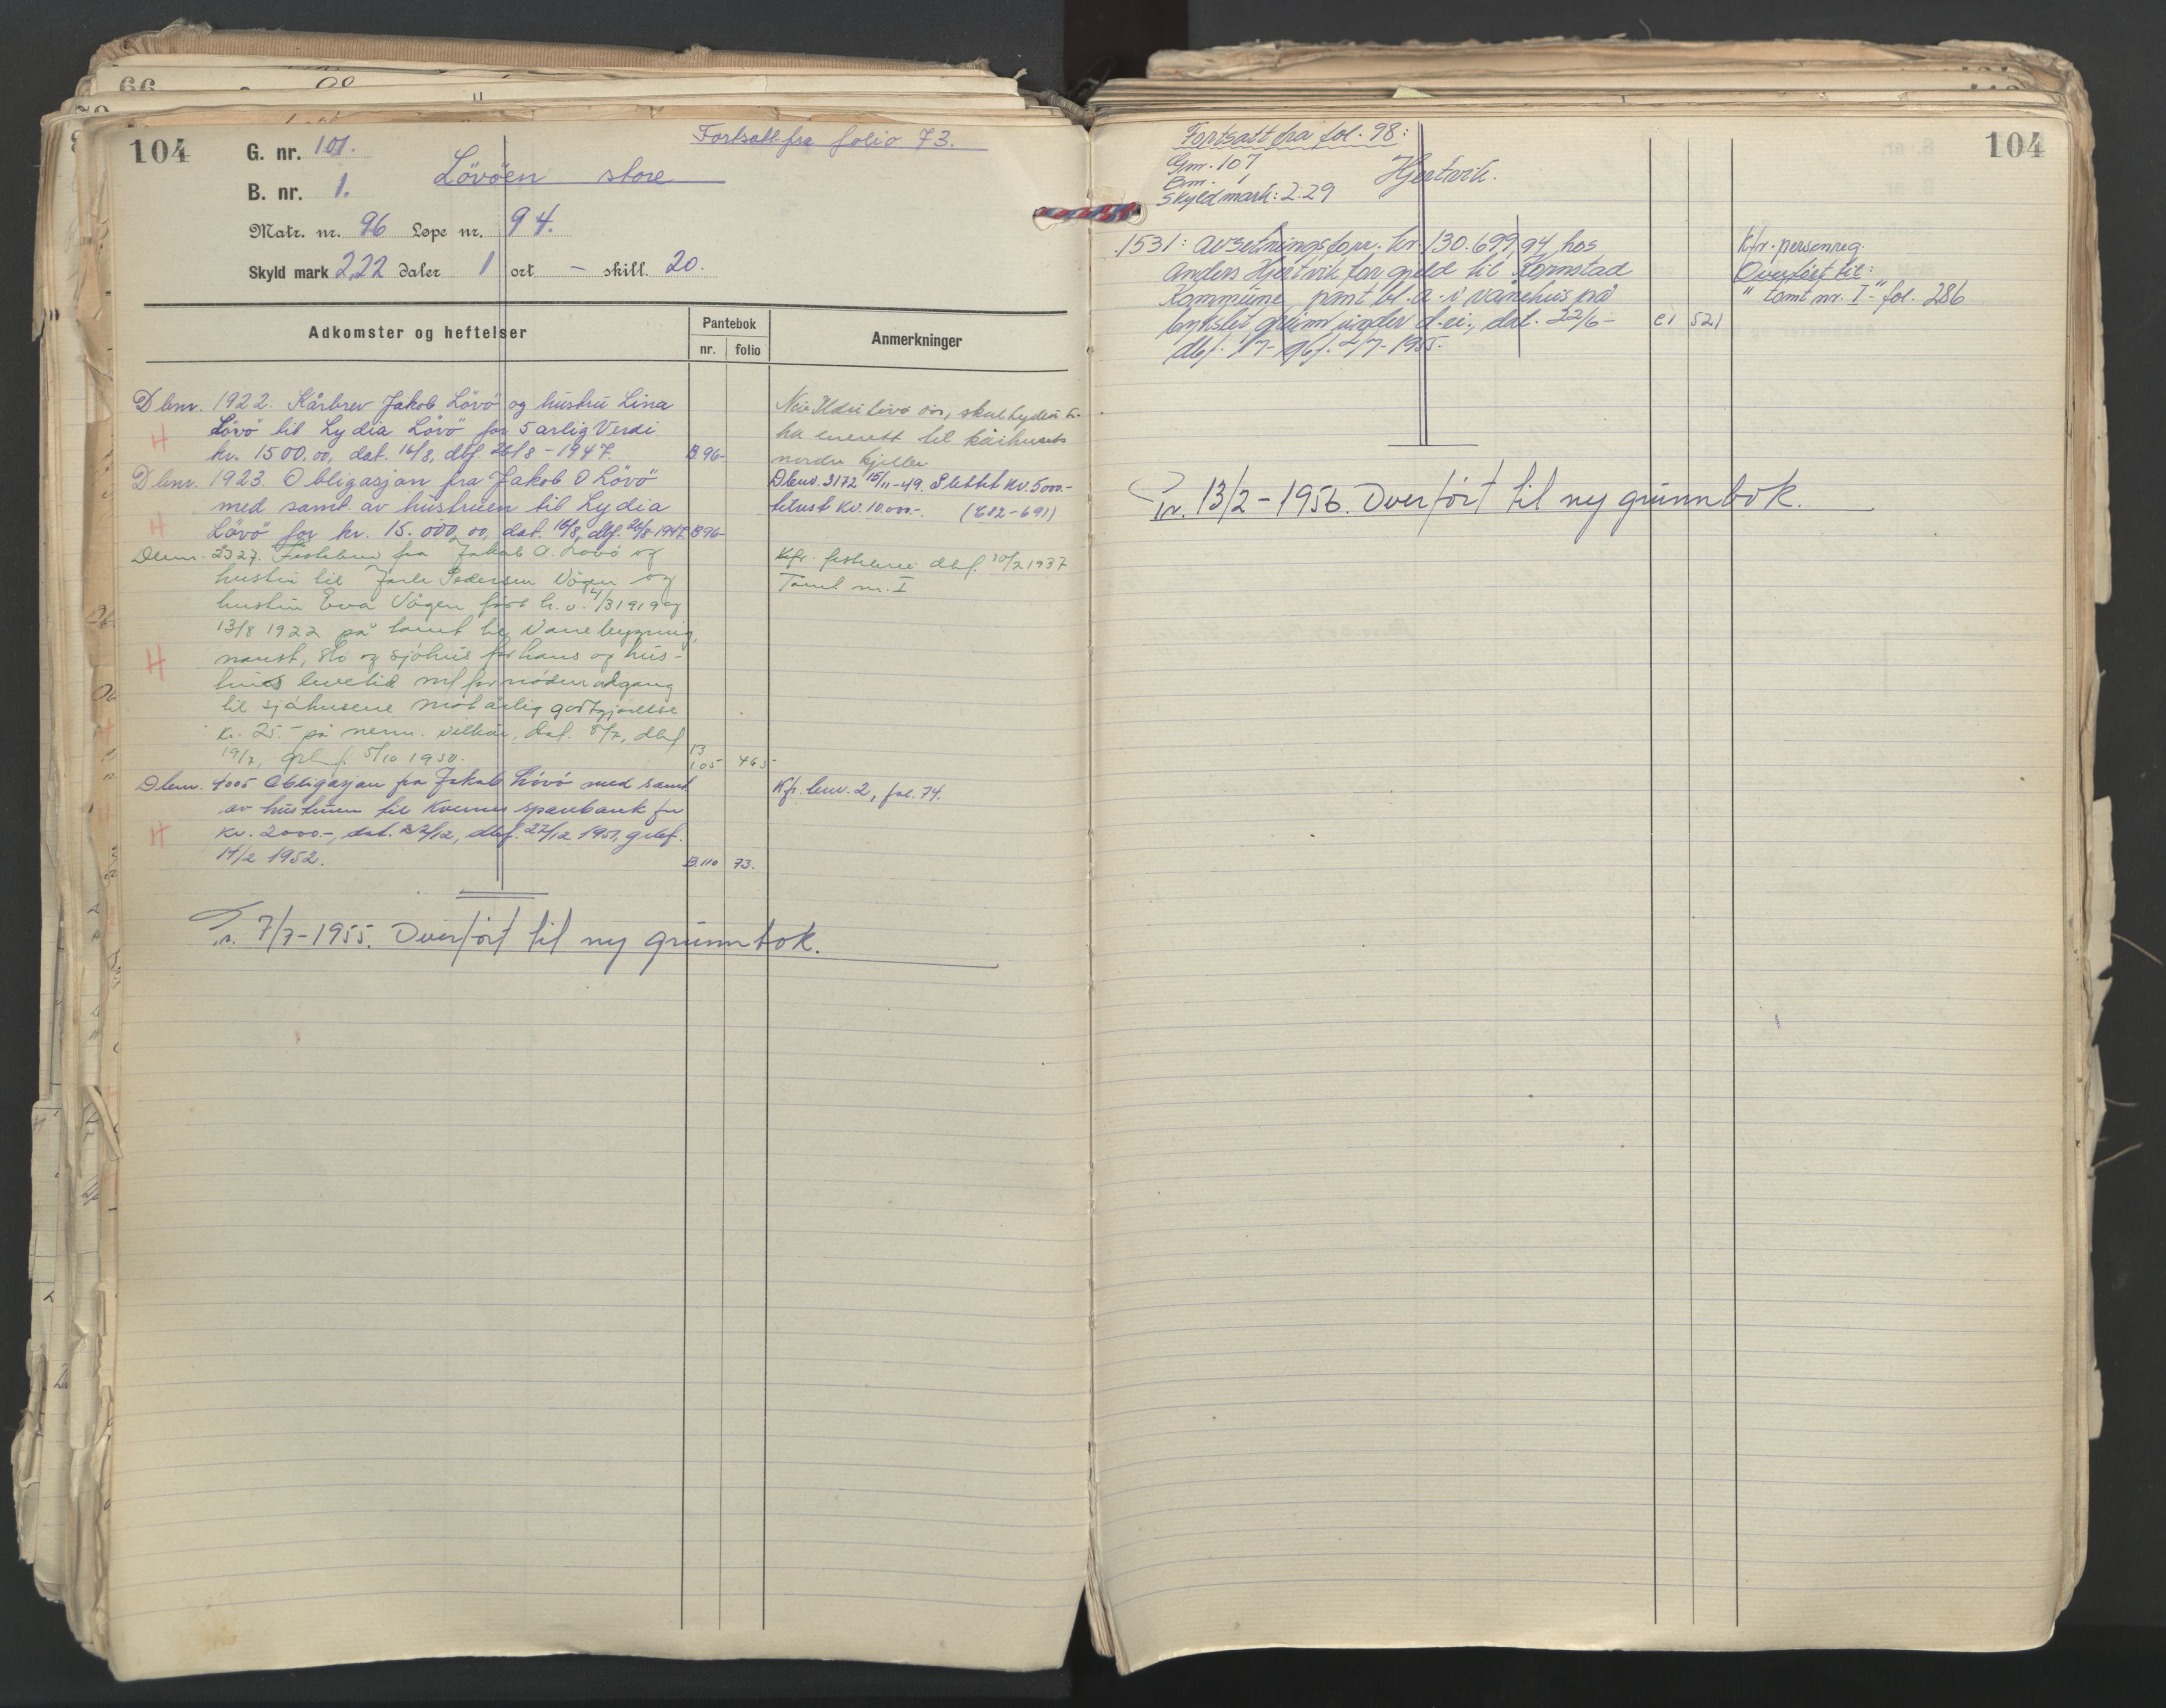 104
G. nr. 101.
Fortsatt fra folio 73.
B. nr. 1.
Lövöen store
Matr. nr. 96 Løpe nr. 94.
Skyld mark 2,22 daler 1 ort – skill. 20.
Adkomster og heftelser
Pantebok
nr. folio
Anmerkninger
Dbnr. 1922. Kårbrev Jakob Lövö og hustru Lina
Lövö til Lydia Lövö for 5 årlig Verdi
kr. 1500.00, dat. 16/8, dbf. 26/8 - 1947. B 96-
H
ha enerett til kårhusets
nordre kjeller
Dbnr. 1923. Obligasjon fra Jakob O Lövö
med samt. av hustruen til Lydia
Lövö for kr. 15.000,00, dat. 16/8, dbf. 26/8-1947. B 96-
H
Dbnr. 3172 15/11-49. Slettet kr. 5000.-
tilrest kr. 10000.-
Dbnr. 2327. Festebrev fra Jakob O. Lövö og
hustru til Jarle Pedersen Vågen og
hustru Eva Vågen født h.v. 4/3 1919 og
13/8 1922 på tomt til Vånebygning,
naust, stö og sjöhus for hans og hus-
trues levetid m/ fornöden adgang
til sjöhusene mot årlig godtgjörelse
kr. 25.- på nerm. vilkår, dat. 8/7, dbf
19/7, 5/10 1950. B 105 465
H
Kfr. festebrev dbf. 10/2 1937
Tomt nr. I
Dbnr. 4005 Obligasjon fra Jakob Lövö med samt.
av hustruen til Kvernes sparebank for
kr. 2000.-, dat. 22/12, dbf. 27/12 1951, gjbf.
14/2 1952. B. 110 73.
H
Kfr. bnr. 2, fol. 74.
7/7-1955. Overfört til ny grunnbok.
104
Fortsatt fra fol. 98:
Gnr. 107
Bnr. 1
Hjertvik.
Skyldmark: 2.29
1531: Avsetningsforr. kr. 130.699,94 hos
Anders Hjertvik for gjeld til Kornstad
Kommune, pant bl. a. i vånehus på
bygslet grunn under d. ei., dat. 22/6-
dbf. 1/7- gbf. 2/7-1955.
C1 521
Kfr. personreg.
Overfört til:
" tomt nr. I " - fol. 286
13/2-1956. Overfört til ny grunnbok.